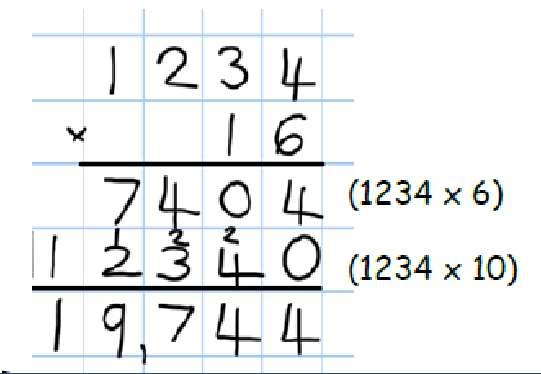 1 2 3 4
× 1 6
7 4 0 4 (1234 x 6)
1 2 2
1 2 3 4 0 (1234 x 10)
1 9,7 4 4